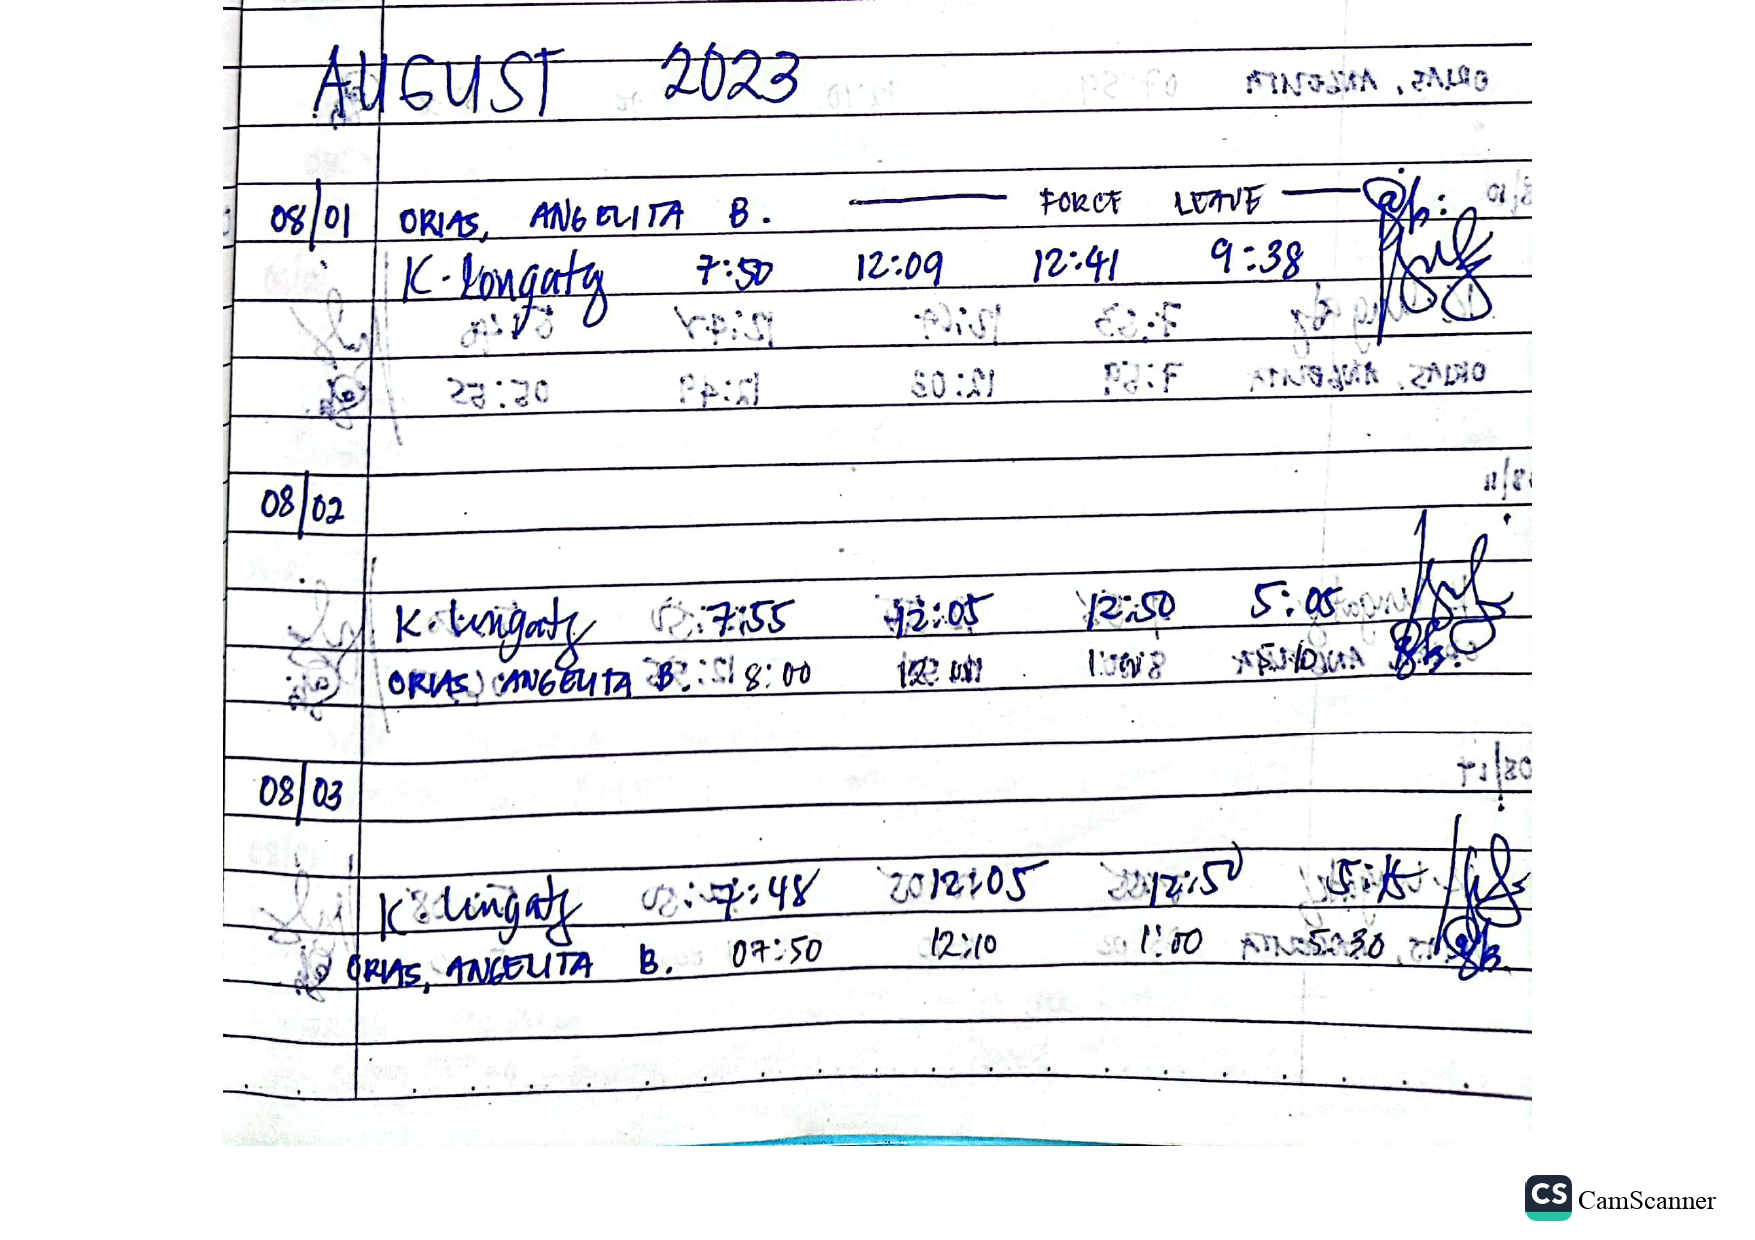 AUGUST 2023
08/01 ORIAS, ANGELITA B. — FORCE LEAVE —
K. Lungaty 7:50 12:09 12:41 9:38
08/02
K. Lungatz 7:55 12:05 12:50 5:05
ORIAS, ANGELITA B. 8:00
08/03
K. Lungatz 7:48 12:05 12:50 5:15
ORIAS, ANGELITA B. 07:50 12:10 1:00 5:30
CS CamScanner